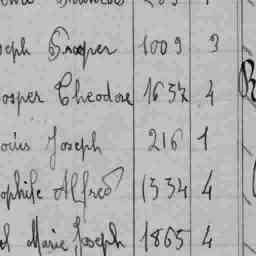 seph Prosper 1009 3
rosper Theodore 1637 4
ouis Joseph 216 1
ophile Alfred 1334 4
el Marie Joseph 1865 4